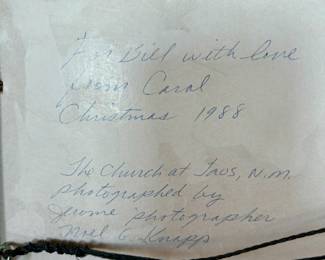 For Bill with love
from Carol
Christmas 1988
The Church at Taos, N.M.
photographed by
photographer
Noel E Knapp